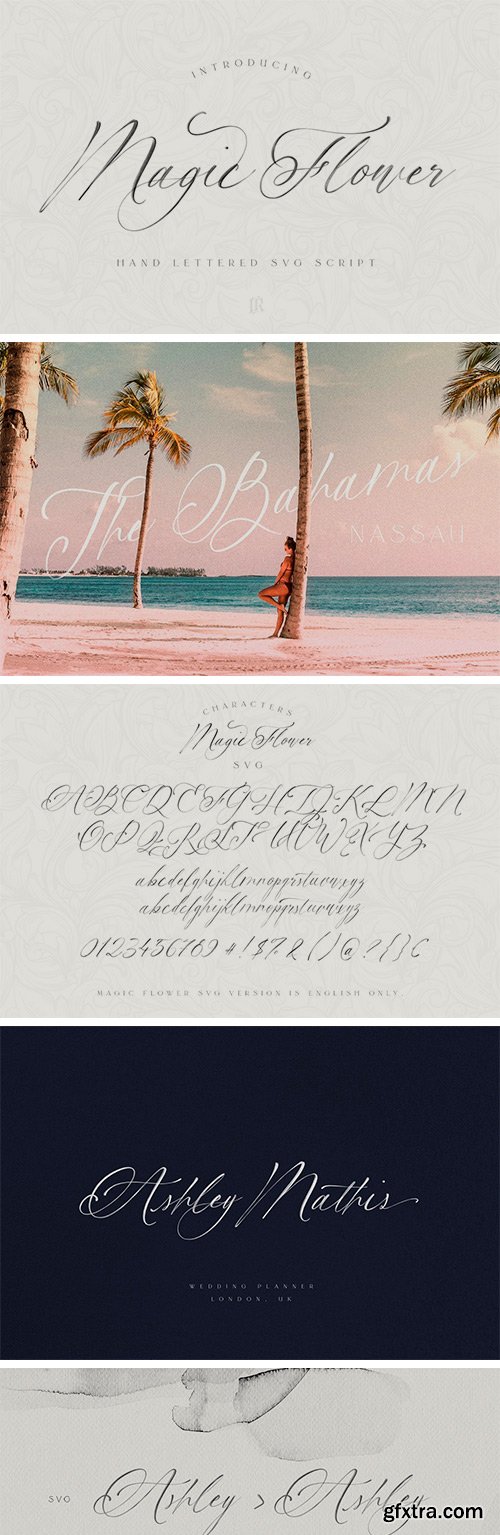 INTRODUCING
Magic Flower
HAND LETTERED SVG SCRIPT
The Bahamas
NASSAU
CHARACTERS
Magic Flower
SVG
ABCDEFGHIJKLMN
OPQRSTUVWXYZ
abcdefghijklmnopqrstuvwxyz
abcdefghijklmnopqrstuvwxyz
0123456789 #!$% & () @ ? {} €
MAGIC FLOWER SVG VERSION IS ENGLISH ONLY.
Ashley Mathis
WEDDING PLANNER
LONDON, UK
SVG
Ashley > Ashley
gfxtra.com